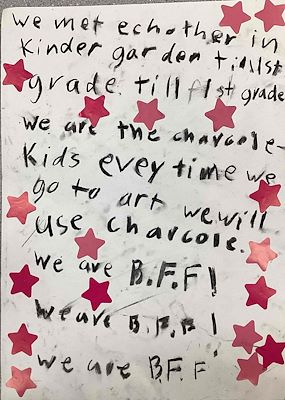 we met echother in
kinder garden till1st
grade till f1st grade
we are the charcole-
kids evey time we
go to art we will
use charcole.
we are B.F.F!
we are B.F.F!
we are B.F.F